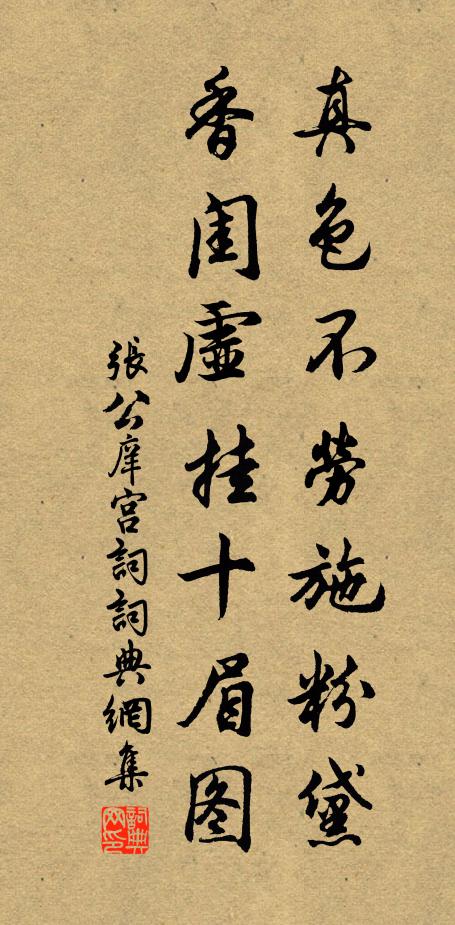 真色不勞施粉黛
香闺虛挂十眉图
張公庠宫詞詞典網集
詞典网印